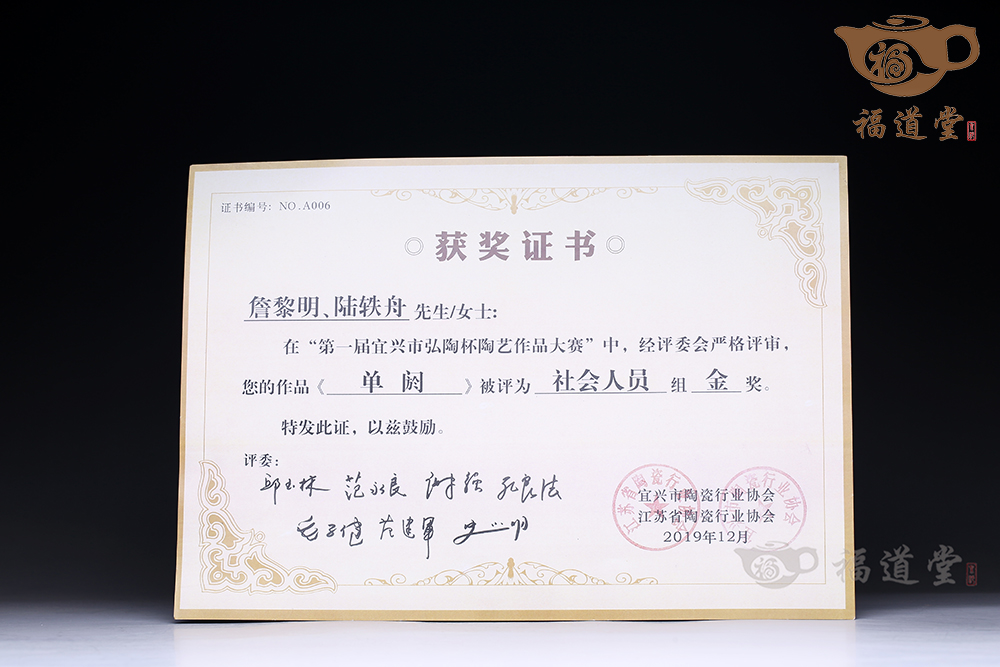 福
福道堂
证书编号：NO.A006
获奖证书
詹黎明、陆轶舟 先生/女士：
在“第一届宜兴市弘陶杯陶艺作品大赛”中，经评委会严格评审，
您的作品《 单阏 》被评为 社会人员 组 金 奖。
特发此证，以兹鼓励。
评委：
邱玉林 范永良
毛子健 范建军
宜兴市陶瓷行业协会
江苏省陶瓷行业协会
2019年12月
江苏省陶瓷行业协会
福道堂